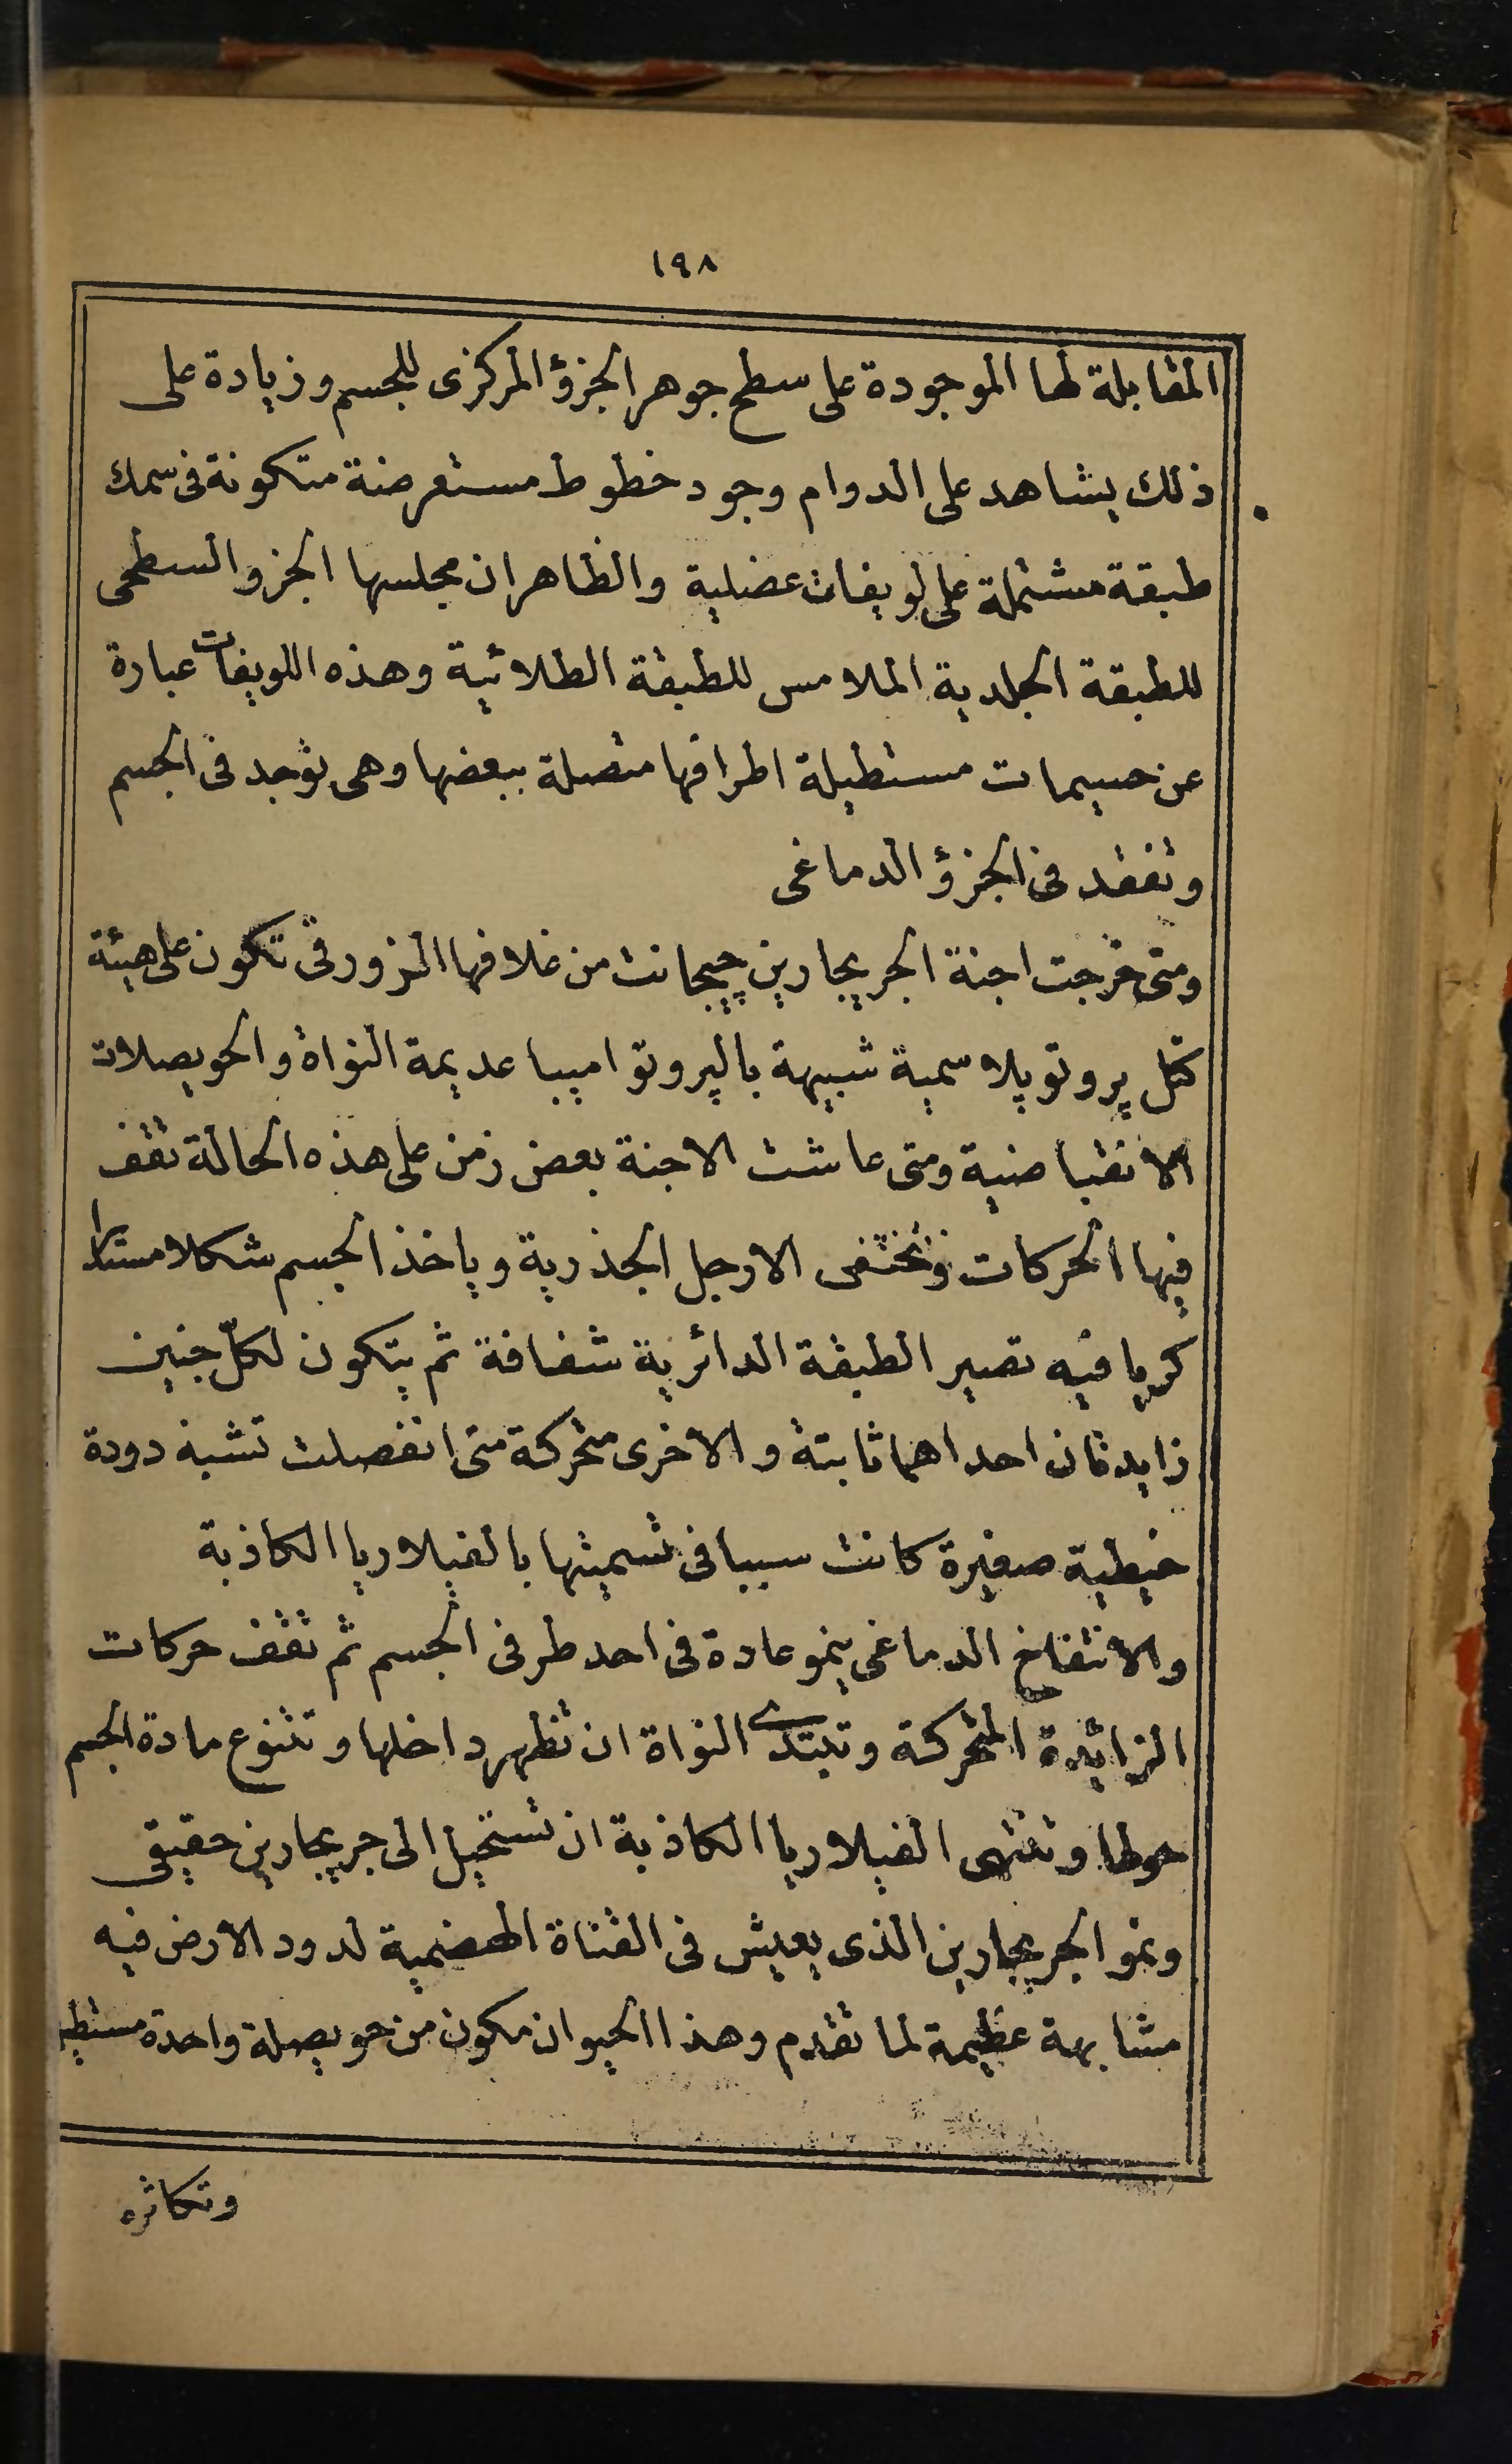 ١٩٨
المقابلة لها الموجودة على سطح جوهر الجزؤ المركزى للجسم وزيادة على
ذلك يشاهد على الدوام وجود خطوط مستعرضة متكونة فى سمك
طبقة مشتملة على لويفات عضلية والظاهر ان مجلسها الجزو السطحى
للطبقة الجلدية الملامس للطبقة الطلائية وهذه اللويفات عبارة
عن جسيمات مستطيلة اطرافها متصلة ببعضها وهى توجد فى الجسم
وتفقد فى الجزؤ الدماغى
ومتى خرجت اجنة الجريجارين چيجانت من غلافها الزورقى تكون على هيئة
كتل پروتوپلاسمية شبيهة بالپروتواميبا عديمة النواة والحويصلات
الانقباضية ومتى عاشت الاجنة بعض زمن على هذه الحالة تقف
فيها الحركات وتختفى الارجل الجذرية وياخذ الجسم شكلا مستديرا
كريا فيه تصير الطبقة الدائرية شفافة ثم يتكون لكلّ جنين
زايدتان احداهما ثابتة والاخرى متحركة متى انفصلت تشبه دودة
خيطية صغيرة كانت سببا فى تسميتها بالفيلاريا الكاذبة
والانتفاخ الدماغى ينمو عادة فى احد طرفى الجسم ثم تقف حركات
الزائدة المتحركة وتبتدى النواة ان تظهر داخلها وتتنوع مادة الجسم
حولها وتنتهى الفيلاريا الكاذبة ان تستحيل الى جريجارين حقيقى
ونمو الجريجارين الذى يعيش فى القناة الهضمية لدود الارض فيه
مشابهة عظيمة لما تقدم وهذا الحيوان مكون من حويصلة واحدة
وتكاثره